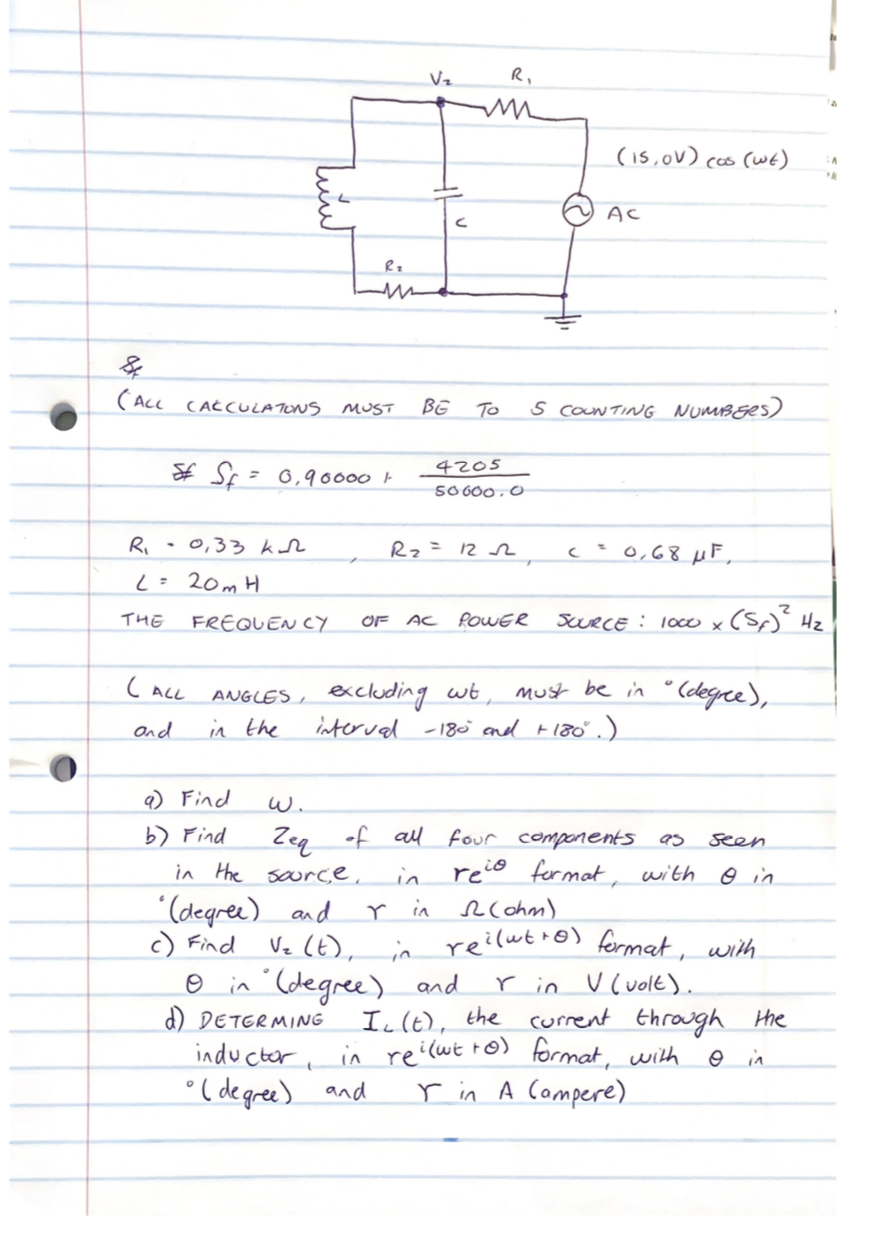 V₂ R₁
(15,0V) cos (wt)
L
C
AC
R₂
Sf
(ALL CALCULATONS MUST BE TO 5 COUNTING NUMBERS)
Sf = 0,90000 + 4205 / 50600.0
R₁ = 0,33 kΩ , R₂ = 12 Ω, C = 0,68 μF,
L = 20mH
THE FREQUENCY OF AC POWER SOURCE: 1000 x (Sf)² Hz
(ALL ANGLES, excluding wt, must be in °(degree),
and in the interval -180° and +180°.)
a) Find w.
b) Find Zeq of all four components as seen
in the source, in re^iθ format, with θ in
°(degree) and r in Ω(ohm)
c) Find V₂ (t), in re^i(wt+θ) format, with
θ in °(degree) and r in V (volt).
d) DETERMING I_L(t), the current through the
inductor, in re^i(wt+θ) format, with θ in
°(degree) and r in A (ampere)